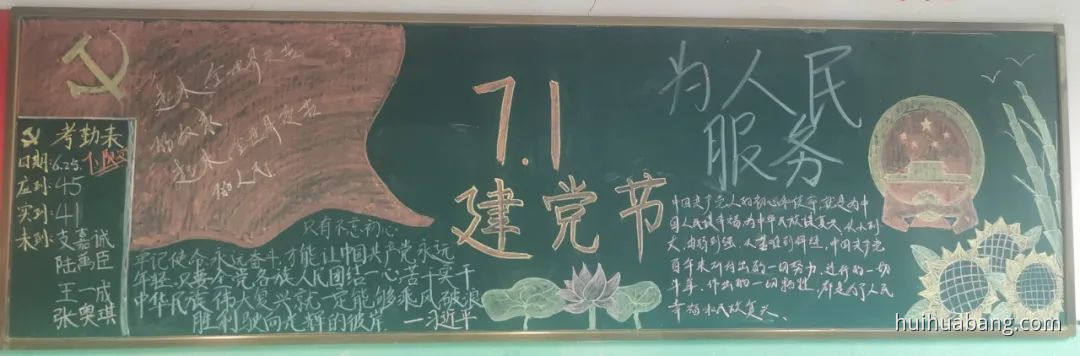 考勤表
日期:6.25.
应到:45
实到:41
未到:支嘉诚
陆禹臣
王一成
张奥琪
起来,全世界受苦
的人民
7.1
建党节
只有不忘初心、
牢记使命永远奋斗,才能让中国共产党永远
年轻.只要全党各族人民团结一心苦干实干
中华民族伟大复兴就一定能够乘风破浪
胜利驶向光辉的彼岸. —习近平
为人民
服务
中国共产党人的初心和使命,就是为中
国人民谋幸福为中华民族谋复兴,从小到
大、由弱到强、从
中国共产党
百年来所付出的一切努力、进行的一切
斗争、作出的一切牺牲,都是为了人民
幸福和民族复兴.
huihuabang.com